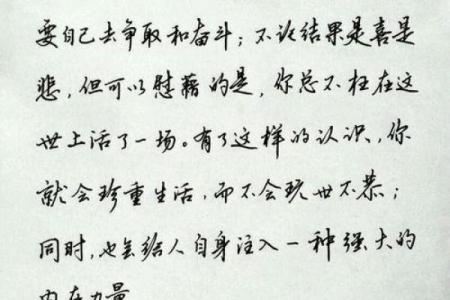 要自己去争取和奋斗；不论结果是喜是
悲，但可以慰藉的是，你总不枉在这
世上活了一场。有了这样的认识，你
就会珍重生活，而不会玩世不恭；
同时，也会给人自身注入一种强大的
内在力量